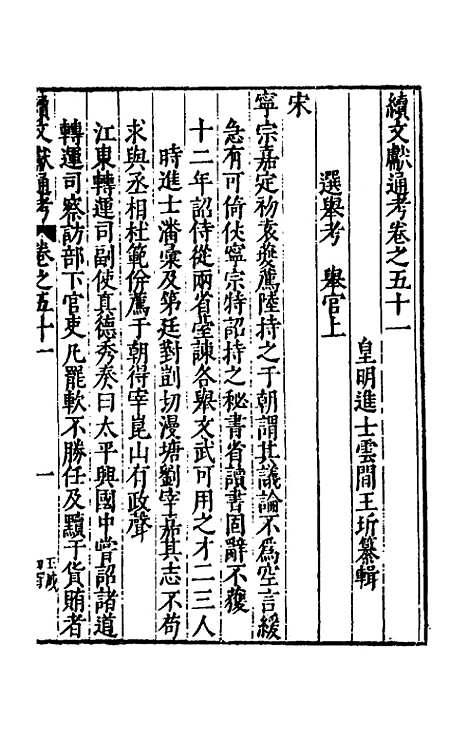 續文獻通考卷之五十一
皇明進士雲間王圻纂輯
選舉考 舉官上
宋
寧宗嘉定初袁燮薦陸持之于朝謂其議論不爲空言緩
急有可倚仗寧宗特詔持之秘書省讀書固辭不獲
十二年詔侍從兩省臺諫各舉文武可用之才二三人
時進士潘彙及第廷對剴切漫塘劉宰嘉其志不苟
求與丞相杜範份薦于朝得宰崑山有政聲
江東轉運司副使真德秀奏曰太平興國中嘗詔諸道
轉運司察訪部下官吏凡罷軟不勝任及黷于貨賄者
續文獻通考 卷之五十一 一